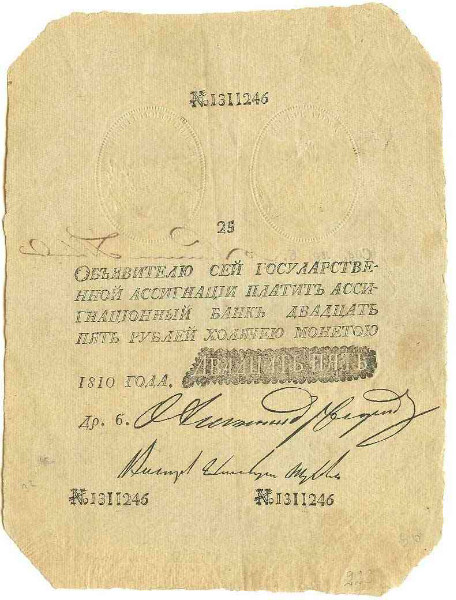 №1311246
25
ОБЪЯВИТЕЛЮ СЕЙ ГОСУДАРСТВЕ-
ННОЙ АССИГНАЦІИ ПЛАТИТЪ АССИ-
ГНАЦІОННЫЙ БАНКЪ ДВАДЦАТЬ
ПЯТЬ РУБЛЕЙ ХОДЯЧЕЮ МОНЕТОЮ
1810 ГОДА. ДВАДЦАТЬ ПЯТЬ
ДР. Б.
№1311246 №1311246